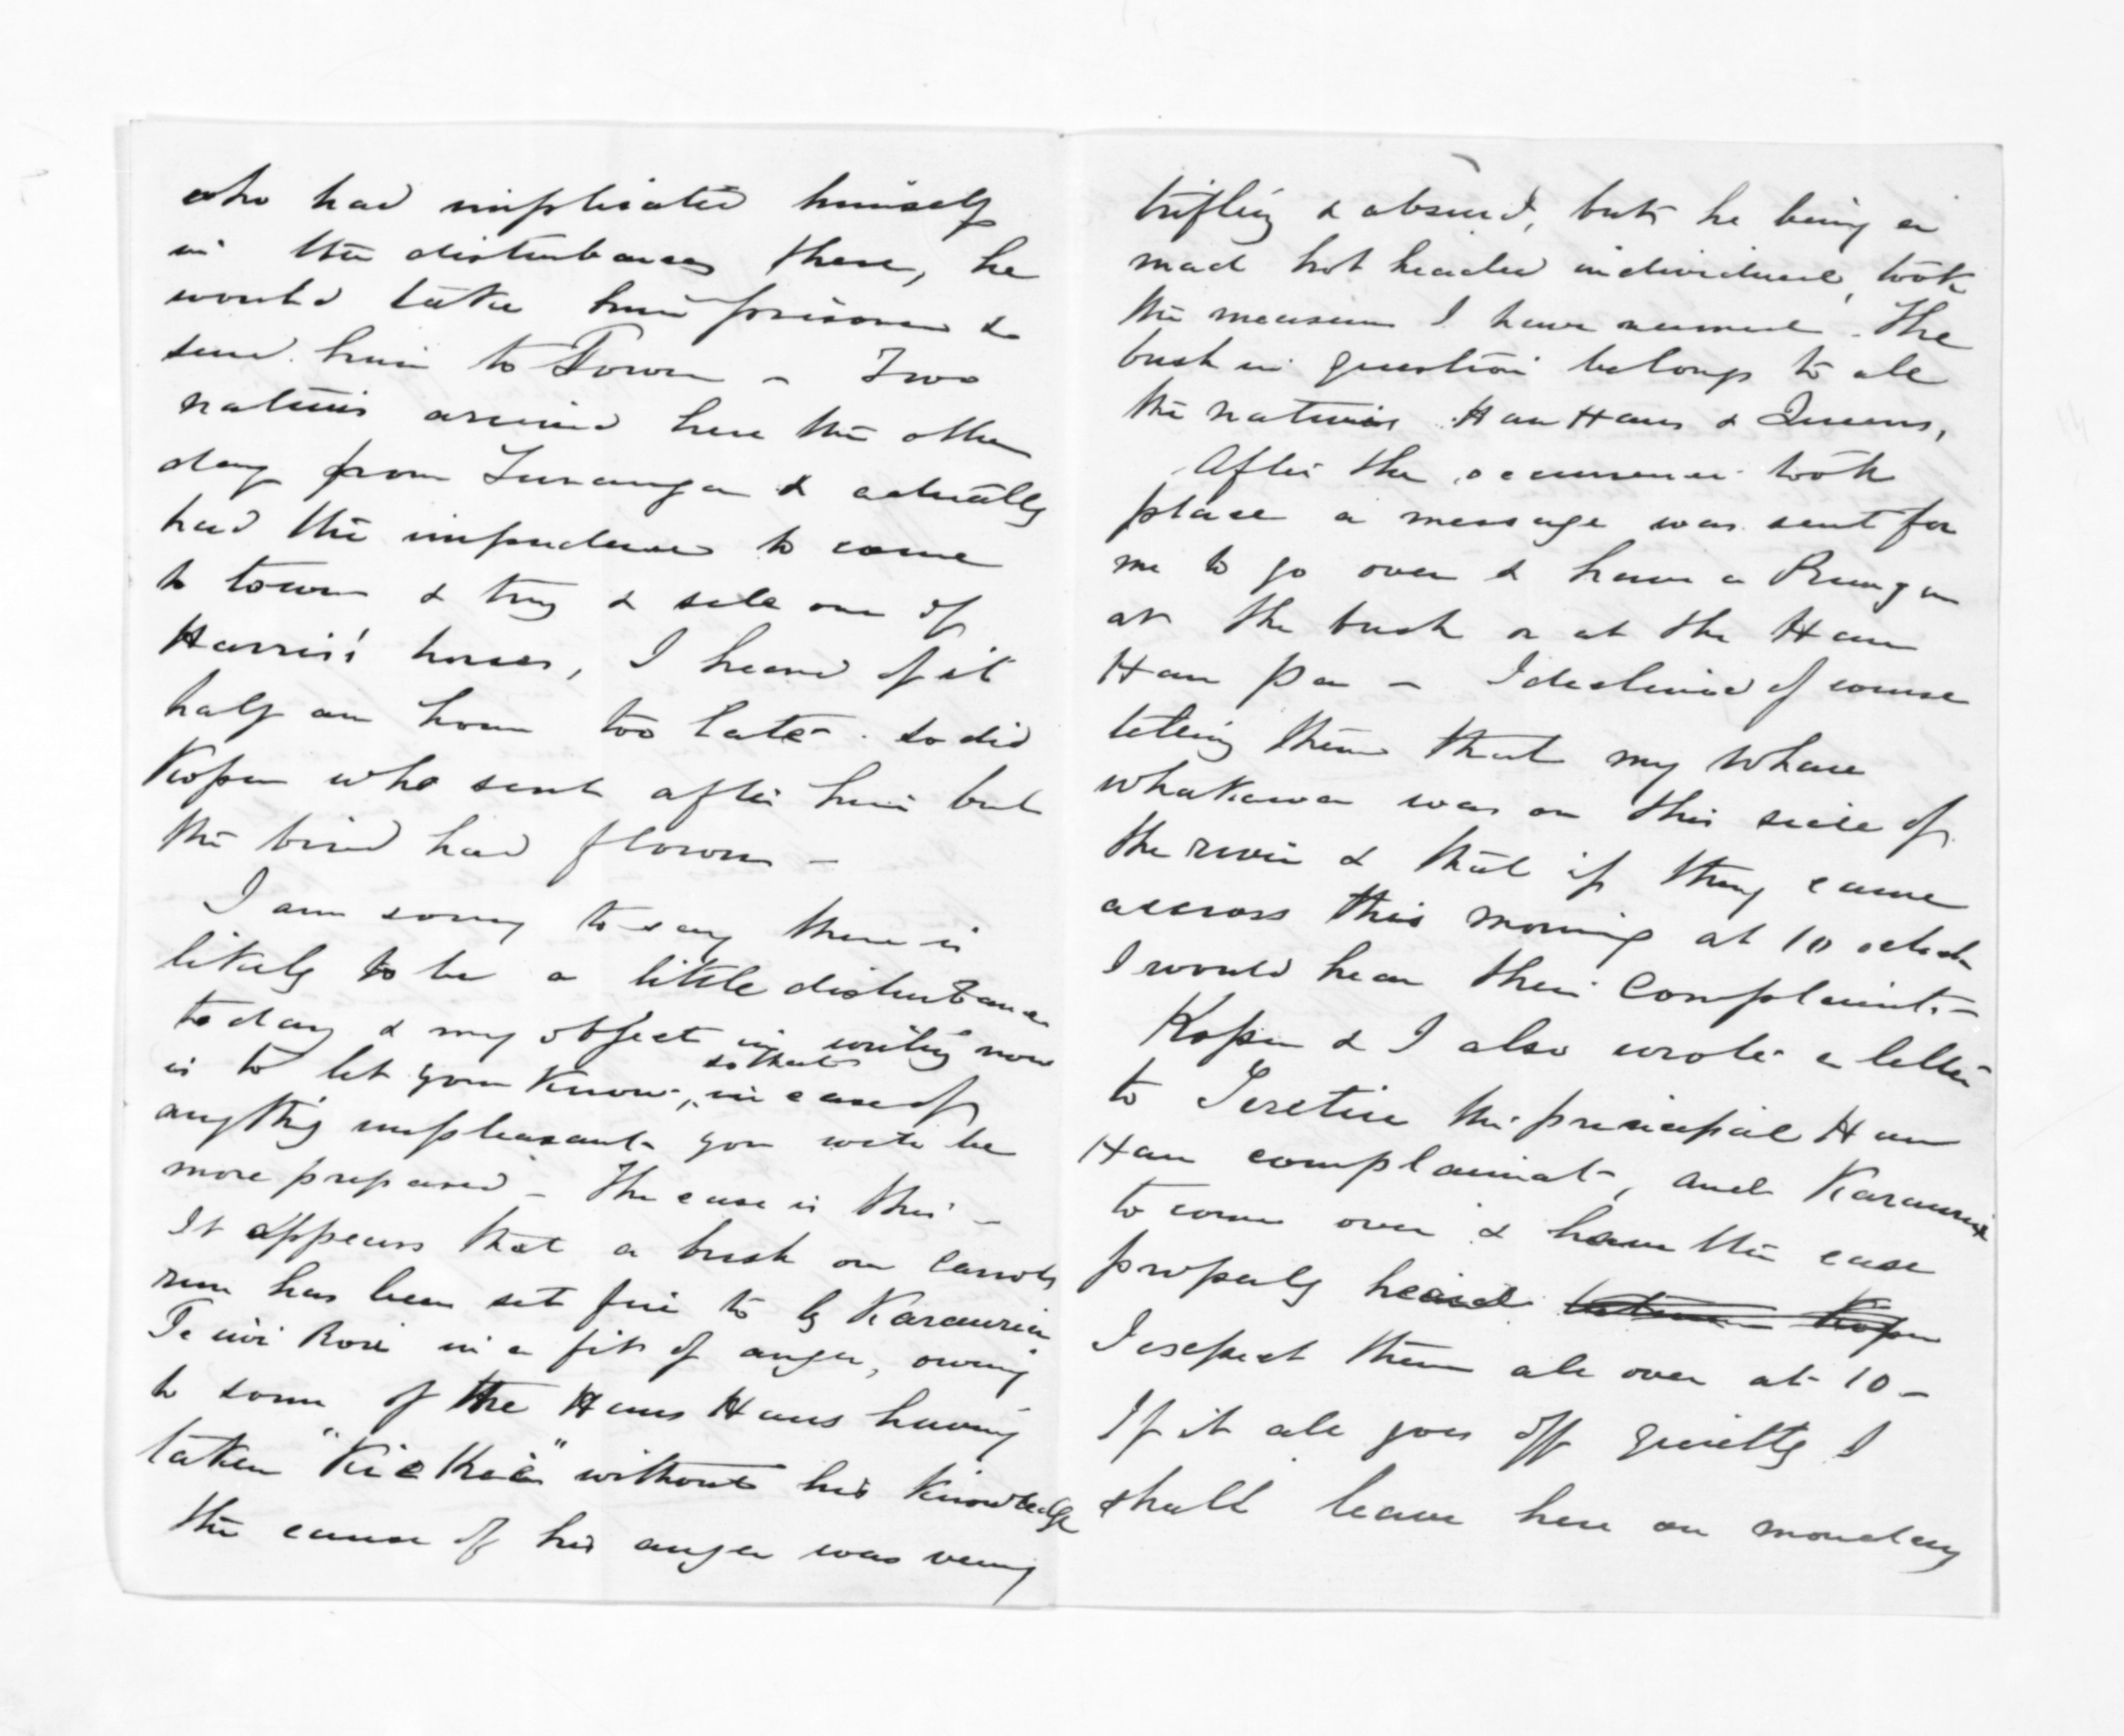 who had implicated himself
in the disturbances there, he
would take him prisoner &
send him to Town – Two
natives arrived here the other
day from Turanga & actually
had the impudence to come
to town & try & sell one of
Harris's horses, I heard of it
half an hour too late. So did
Kopu who sent after him but
the bird had flown –
I am sorry to say there is
likely to be a little disturbance
today & my object in writing now
is to let you know, so that in case of
anythg unpleasant you will be
more prepared – The case is this –
It appears that a bush on Carrols
run has been set fire to by Karauria
Te in a fit of anger, owing
to some of the Haus Haus having
taken "Kie Kie" without his knowledge
the cause of his anger was very
trifling & absurd, but he being a
mad hot headed individual, took
the measures I have named. The
bush in question belongs to all
the natives Hau Haus & Queens,
After the occurrence took
place a message was sent for
me to go over & have a Runga
at the bush or at the Hau
Hau pa – I declined of course
telling them that my Whare
whakawa was on this side of
the river & that if they came
accross this morning at 10 oclock
I would hear their Complaint. –
Kopu & I also wrote a letter
to the principal Hau
Hau complainat, and Karauria
to come over & have the case
properly heard between Kopu
I expect them all over at 10 –
If it all goes off quietly I
shall leave here on monday